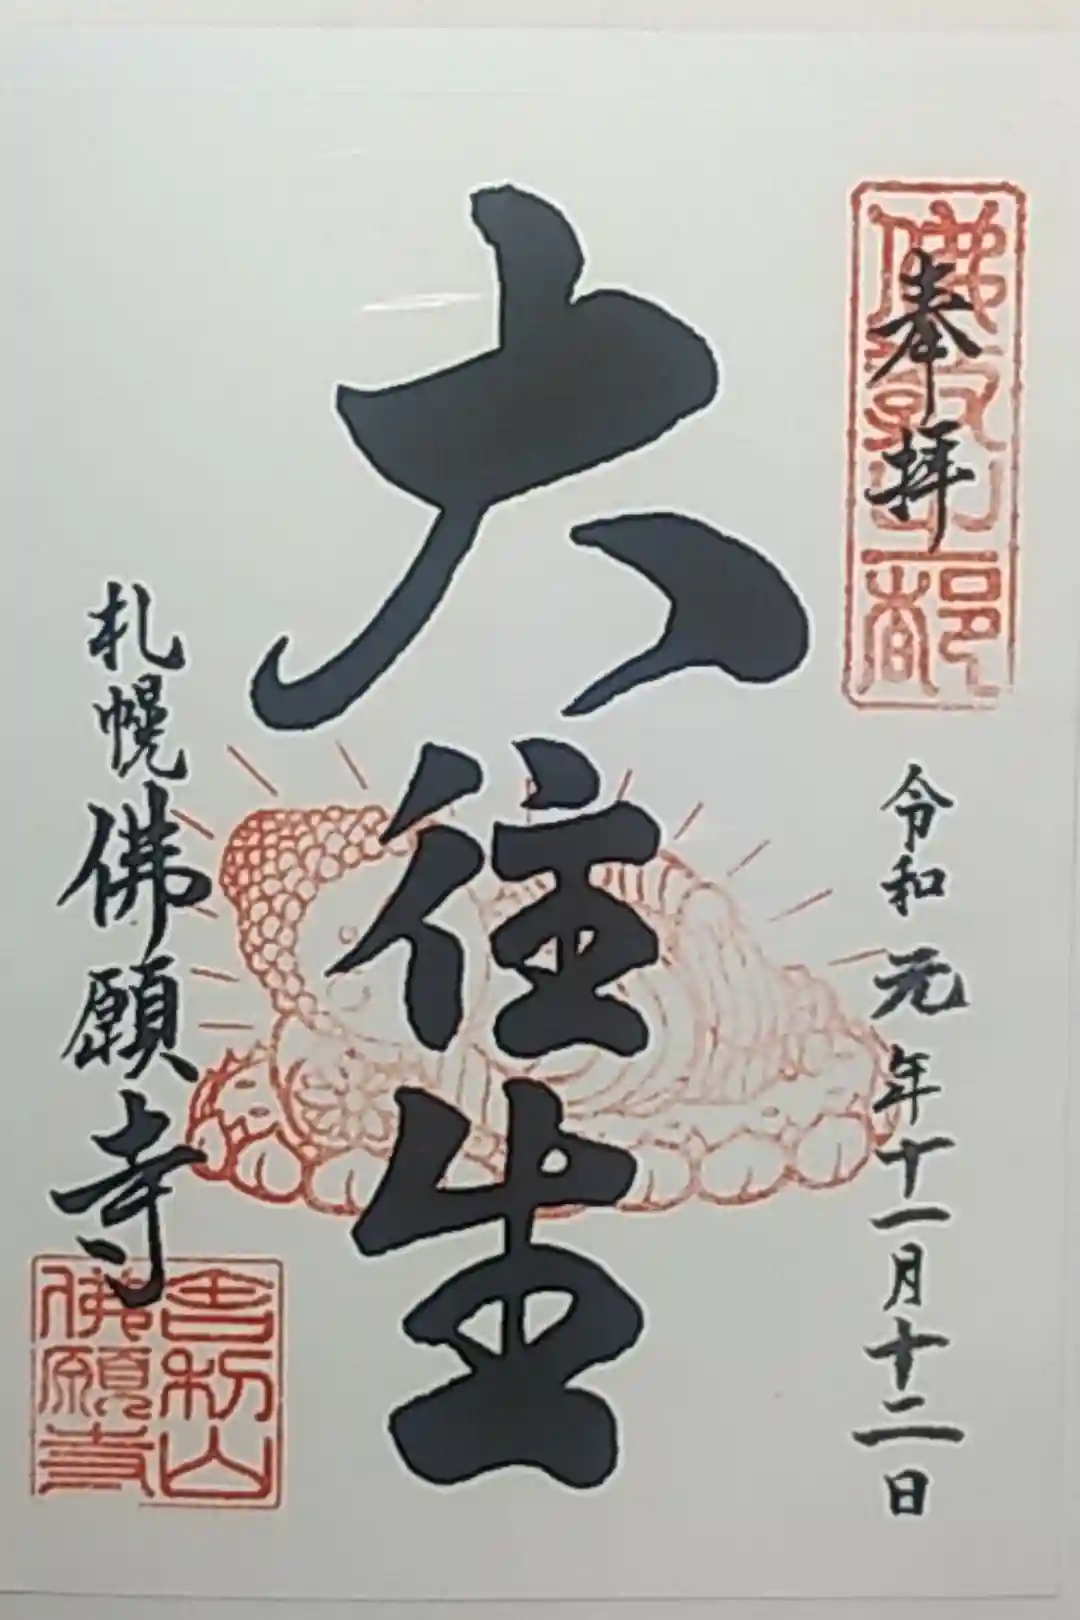 奉拝
佛教之都
令和元年十一月十二日
大往生
札幌佛願寺
舎利山
佛願寺